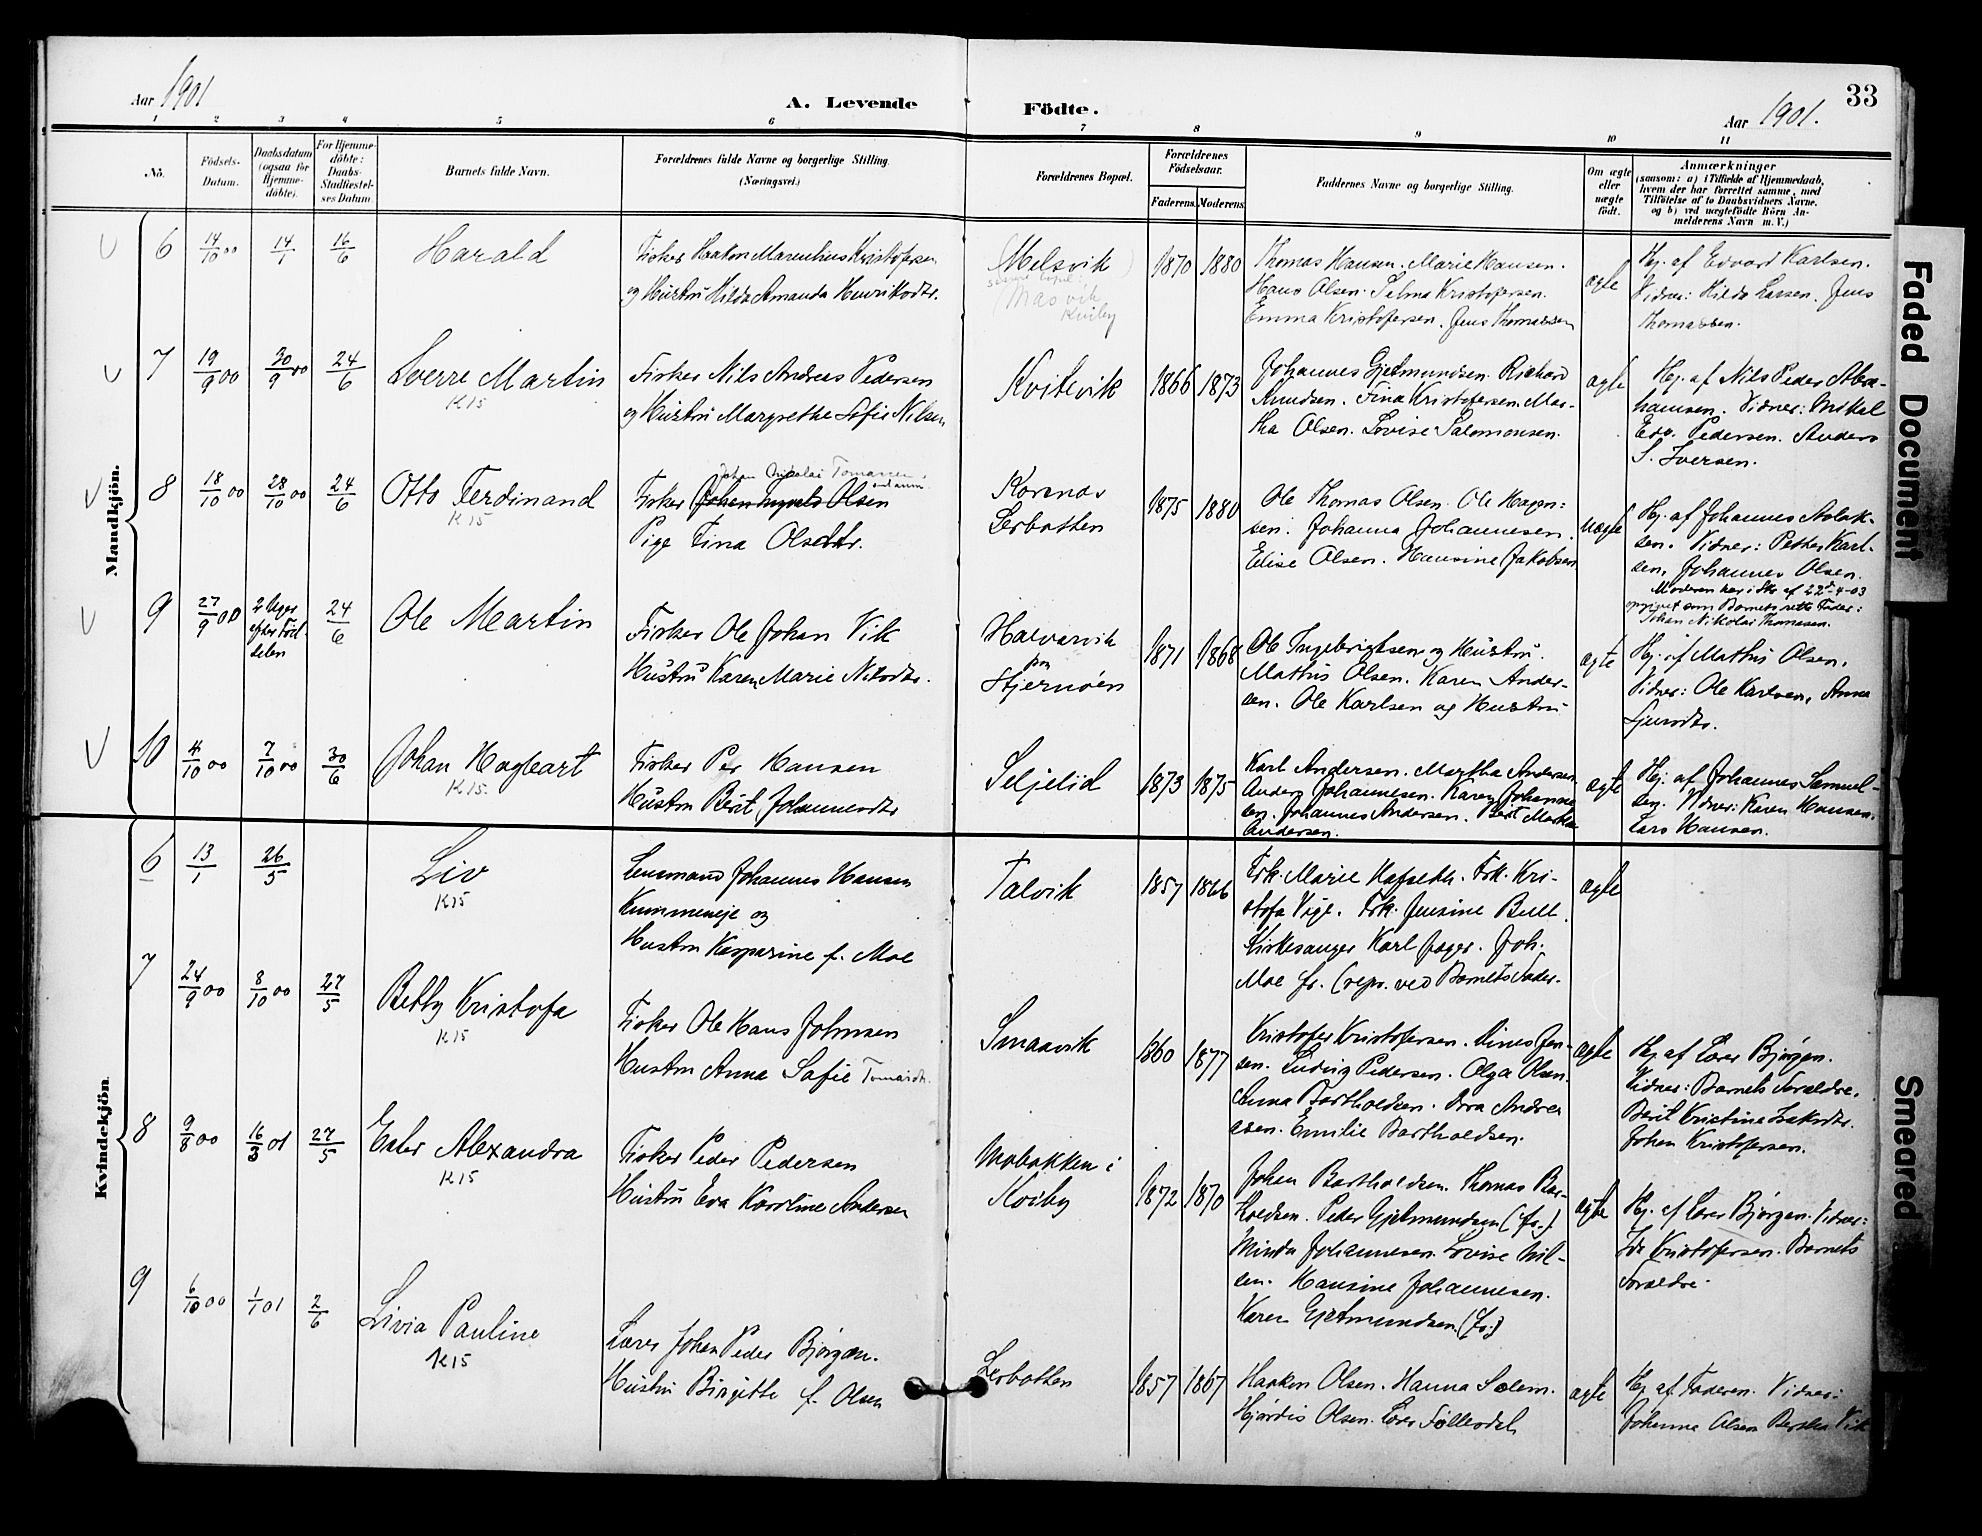 Aar 1901
A. Levende Födte.
Aar 1901.
33
1 2 3 4 5 6 7 8 9 10 11
No.
Födsels-Datum.
Daabsdatum (ogsaa for Hjemmedöbte).
For Hjemmedöbte: Daabs-Stadfæstelses Datum.
Barnets fulde Navn.
Forældrenes fulde Navne og borgerlige Stilling.
(Næringsvei.)
Forældrenes Bopæl.
Forældrenes Födselsaar.
Faderens. Moderens.
Faddernes Navne og borgerlige Stilling.
Om ægte eller uægte födt.
Anmærkninger
(saasom: a) i Tilfælde af Hjemmedaab,
hvem der har forrettet samme, med
Tilföielse af to Daabsvidners Navne,
og b) ved uægtefödte Börn Anmelderens Navn m.V.)
Mandkjön.
6 14/10 00 14/1 16/6 Harald
Fisker Haakon Marenthius Kristofersen
og Hustru Hilda Amanda Henriksdtr.
Melsvik
Masvik
Kviby
1870 1880
Thomas Hansen. Marie Hansen.
Hans Olsen. Selma Kristofersen.
Emma Kristofersen. Jens Thomassen
ægte
Hj. af Edvard Karlsen.
Vidner: Hilda Larsen. Jens
Thomassen.
7 19/9 00 30/9 00 24/6 Sverre Martin
K15
Fisker Nils Andreas Pedersen
og Hustru Margrethe Sofie Nilsen
Kvitevik
1866 1873
Johannes Gjetmundsen. Richard
Amundsen. Fina Kristofersen. Mar-
tha Olsen. Lovise Salomonsen.
ægte
Hj. af Nils Peder Abra-
hamsen. Vidner: Mikal
Edv. Pedersen. Anders
S. Iversen.
8 18/10 00 28/10 00 24/6 Otto Ferdinand
K15
Johan Nikolai Tomassen
Fisker Johan Olsen
Pige Fina Olsdtr.
Korsnes
Lerbotten
1875 1880
Ole Thomas Olsen. Ole Hagen-
sen. Johanna Johannesen.
Elise Olsen. Hansine Jakobsen
uægte
Hj. af Johannes Aslak-
sen. Vidner: Petter Karl-
sen, Johannes Olsen.
Moderen har i Skr. af 22-4-03
opgivet som Barnets rette Fader:
Johan Nikolai Thomassen.
9 27/9 00 2 Uger efter Fødselen 24/6 Ole Martin
Fisker Ole Johan Vik
Hustru Karen Marie Nilsdtr.
Halvarvik
paa
Stjernøen
1871 1868
Ole Ingebrigtsen og Hustru.
Mathis Olsen. Karen Ander-
sen. Ole Karlsen og Hustru
ægte
Hj. af Mathis Olsen.
Vidner: Ole Karlsen, Anna
Sjursdtr.
10 4/10 00 7/10 00 30/6 Johan Hagbart
K15
Fisker Per Hansen
Hustru Berit Johannesdtr
Seljelid
1873 1875
Karl Andersen. Martha Andersen
Anders Johannesen. Karen Johanne-
sen. Johannes Andersen. Berit Martha
Andersen.
ægte
Hj. af Johannes Samuel-
sen. Vidner: Karen Hansen.
Lars Hansen.
Kvindekjön.
6 13/1 26/5 Liv
K15
Lensmand Johannes Hansen
Kummeneje og
Hustru Kasparine f. Moe
Talvik
1857 1866
Frk. Marie Hafseth. Frk. Kri-
stofa Vige. Frk. Jensine Bull.
Kirkesanger Karl Jager. Joh.
Moe fr. (repr. ved Barnets Fader.
ægte
7 24/9 00 8/10 00 27/5 Betty Kristofa
K15
Fisker Ole Hans Johnsen
Hustru Anna Sofie Tomasdtr.
Smaavik
1860 1877
Kristofer Kristofersen. Dines Jen-
sen. Ludvig Pedersen. Olga Olsen.
Anna Bartholdsen. Dora Andrea-
ssen. Emilie Bartholdsen.
ægte
Hj. af Lærer Bjørgen.
Vidner: Barnets Forældre.
Berit Kristine Isaksdtr.
Johan Kristofersen.
8 9/8 00 16/3 01 27/5 Ester Alexandra
K15
Fisker Peder Pedersen
Hustru Eva Karoline Andersen
Mobakken i
Kviby
1872 1870
Johan Bartholdsen. Thomas Bar-
tholdsen. Peder Gjetmundsen (fr.)
Minda Johannesen. Lovise Nil-
sen. Hansine Johannesen.
Karen Gjetmundsen (fr.)
ægte
Hj. af Lærer Bjørgen. Vidner:
Ida Kristofersen. Barnets
Forældre.
9 6/10 00 1/1 01 2/6 Livia Pauline
K15
Lærer Johan Peder Bjørgen.
Hustru Birgitte f. Olsen
Lerbotten
1857 1867
Haakon Olsen. Hanna Solem.
Hjørdis Olsen. Lærer Føllesdal
ægte
Hj. af Faderen. Vidner:
Johanna Olsen Bertha Vik
Faded Document
Smeared